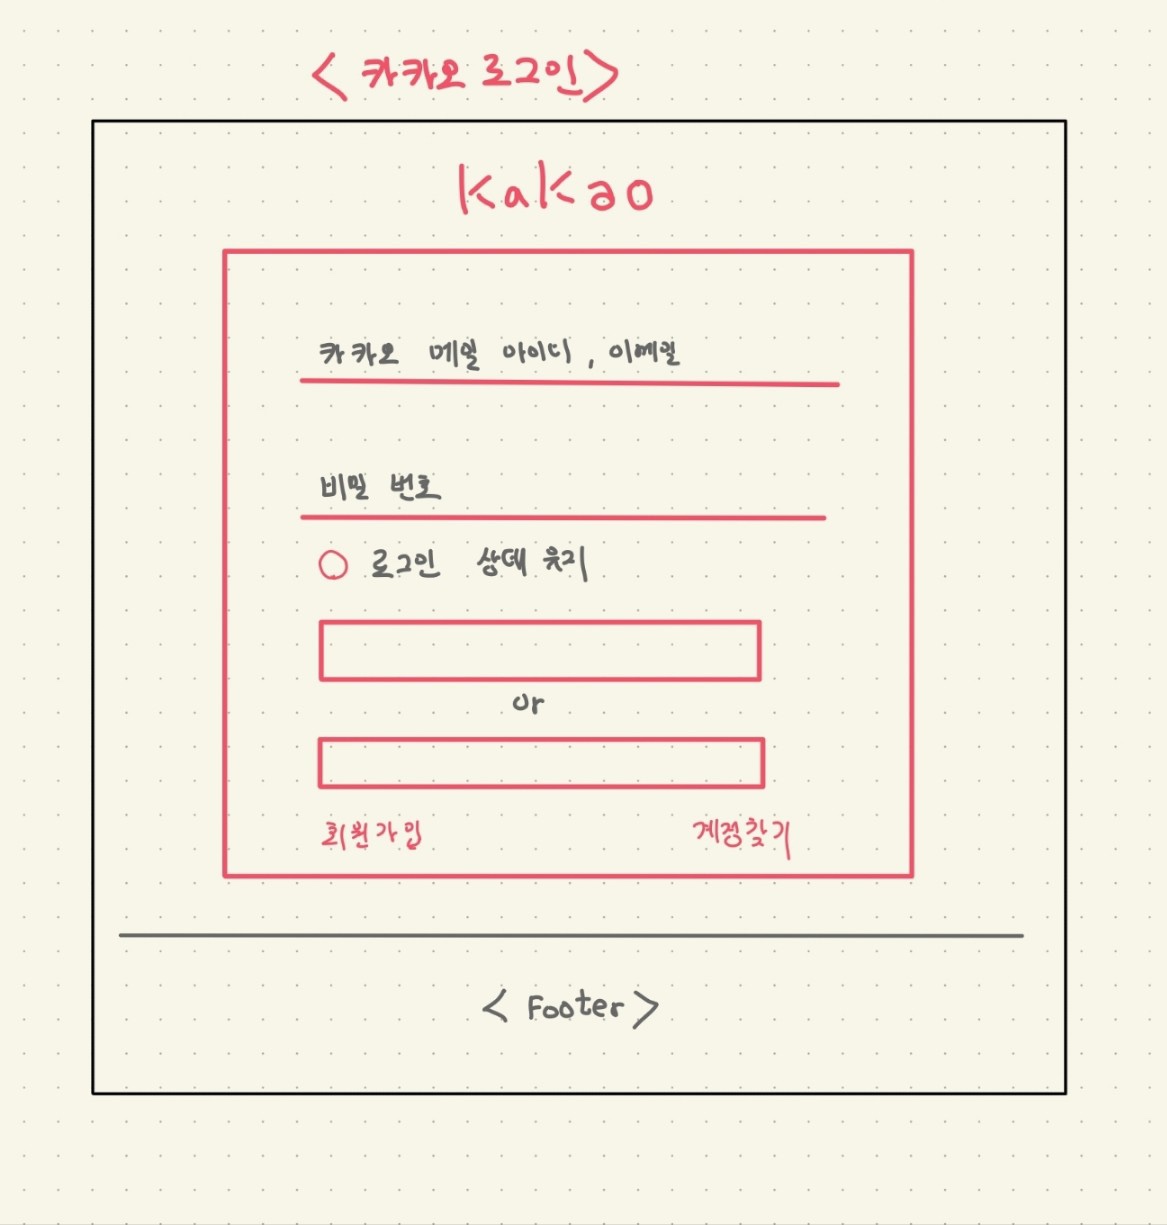 < 카카오 로그인 >
kakao
카카오 메일 아이디, 이메일
비밀 번호
로그인 상태 유지
or
회원가입 계정찾기
< Footer >